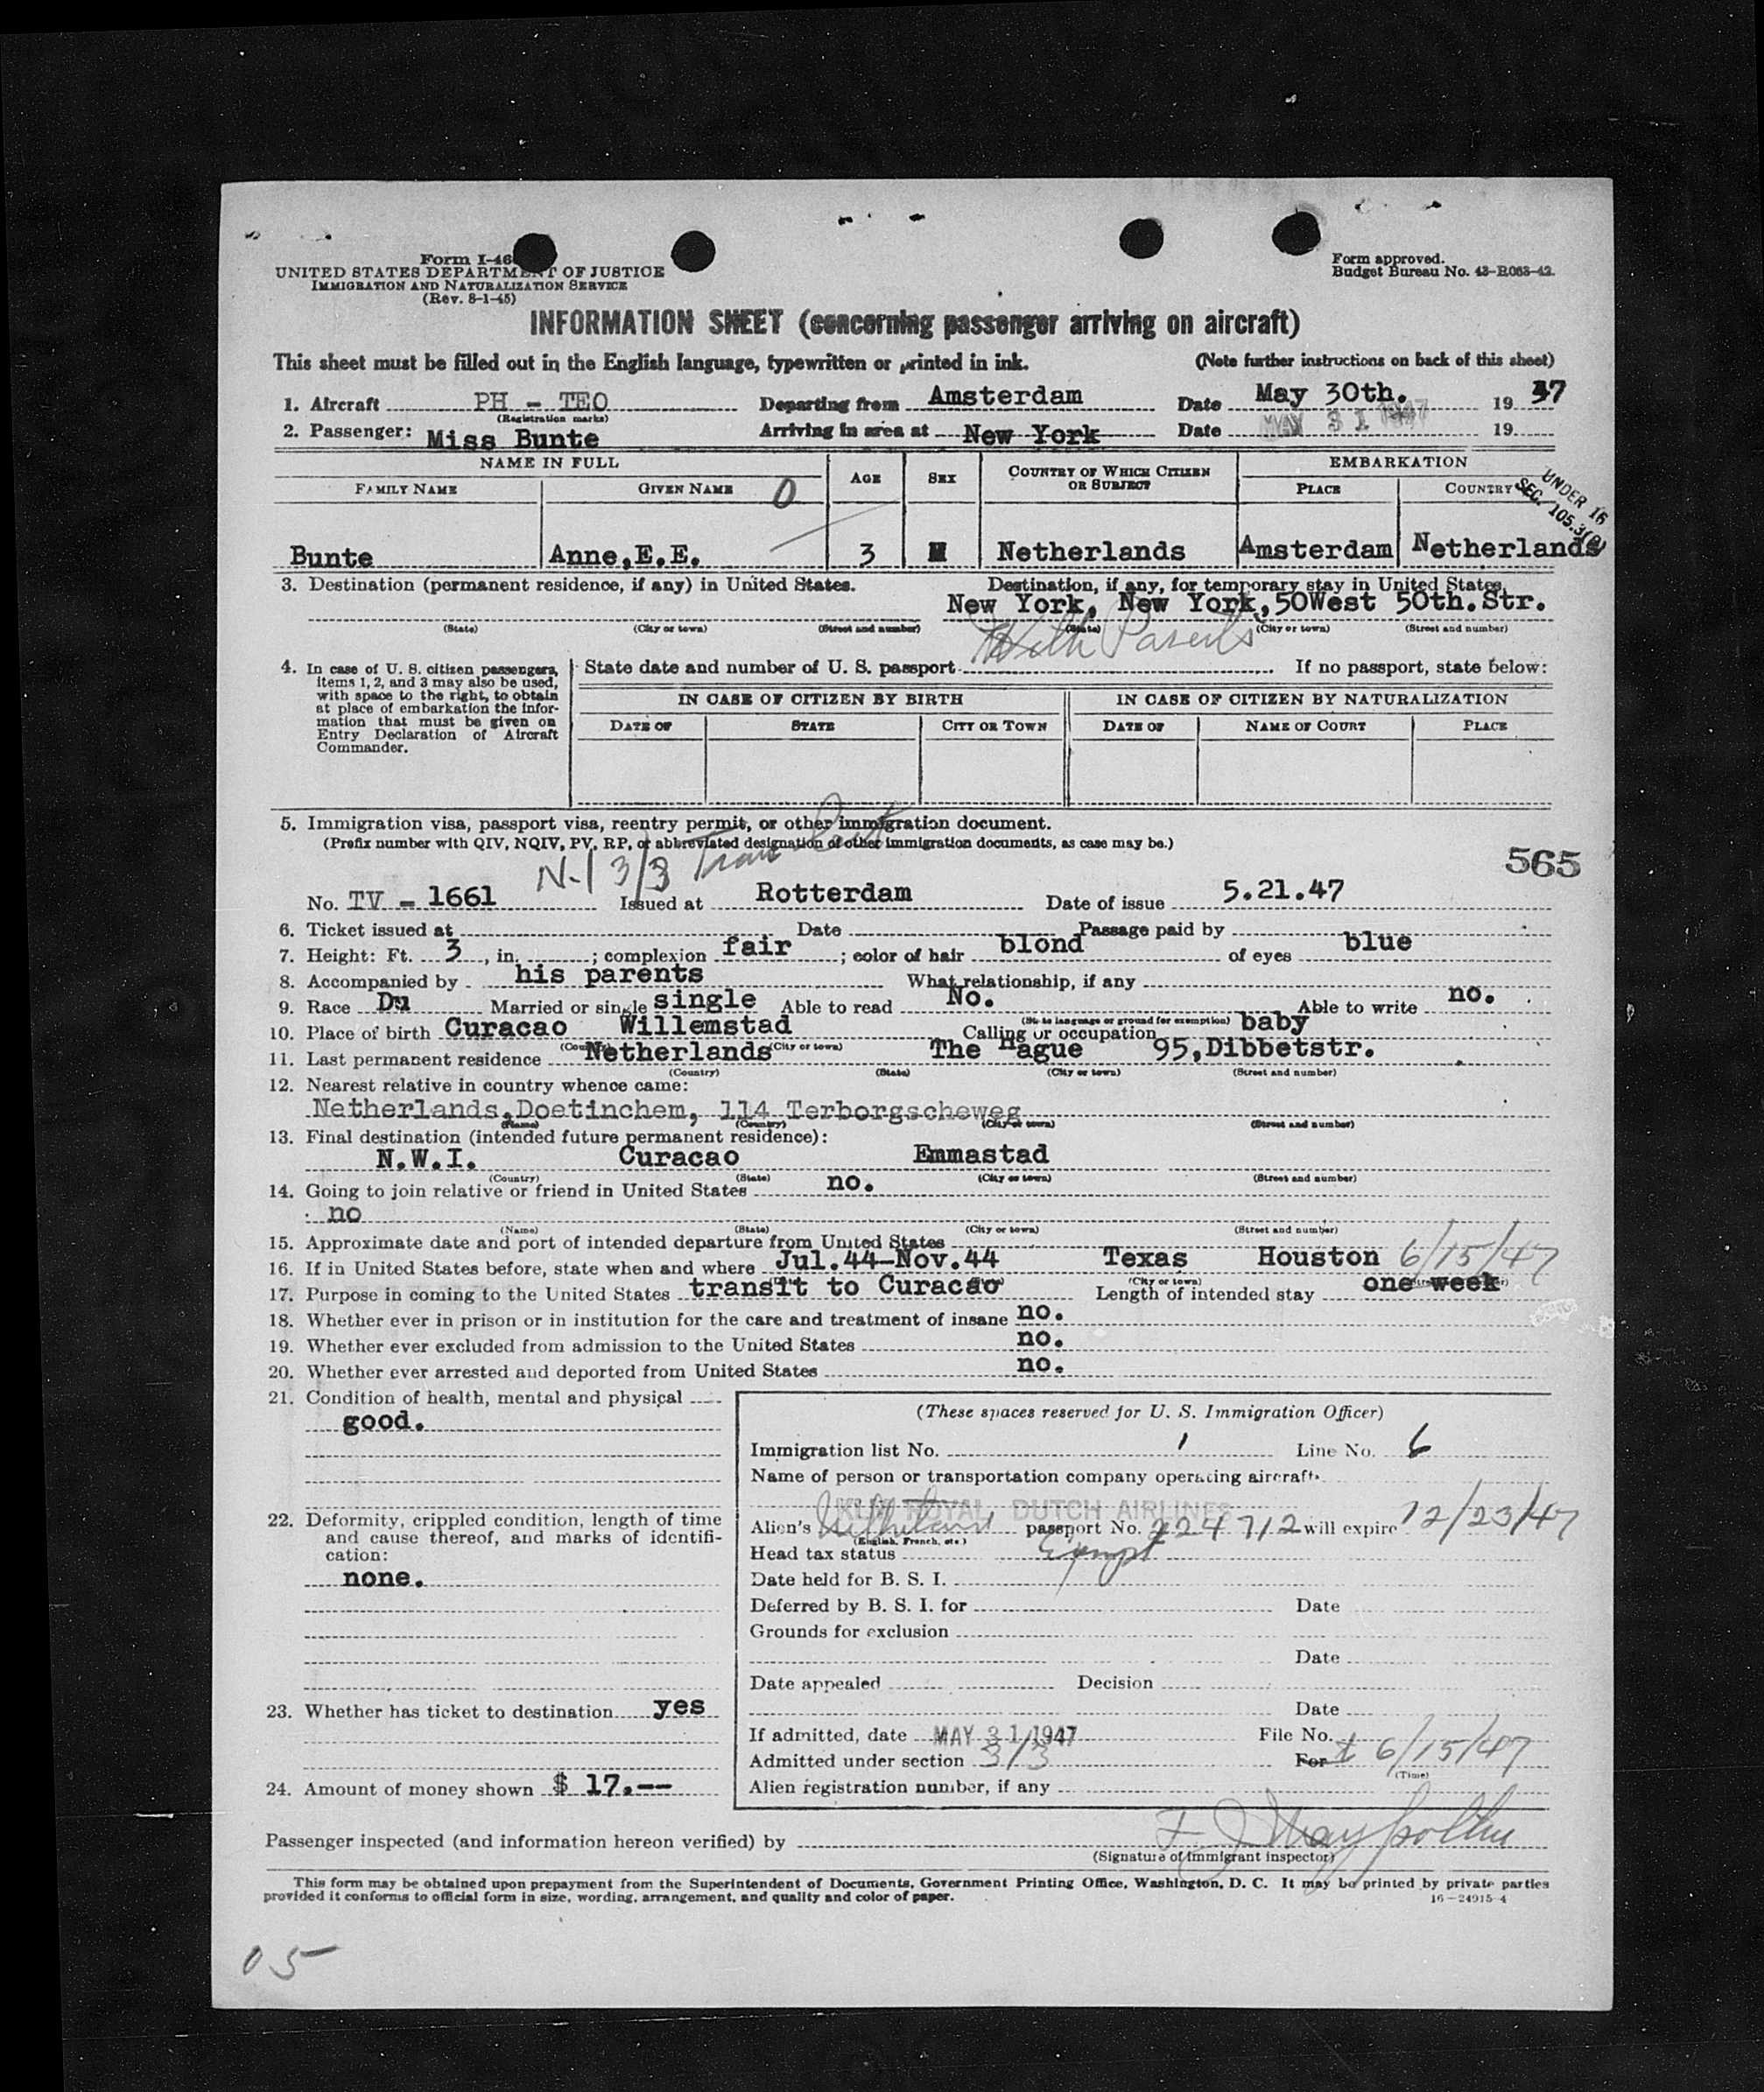 Form I-46
UNITED STATES DEPARTMENT OF JUSTICE
IMMIGRATION AND NATURALIZATION SERVICE
(Rev. 8-1-45)
Form approved.
Budget Bureau No. 43-R063-42.
INFORMATION SHEET (concerning passenger arriving on aircraft)
This sheet must be filled out in the English language, typewritten or printed in ink. (Note further instructions on back of this sheet)
1. Aircraft PH - TEO Departing from Amsterdam Date May 30th. 19 47
(Registration marks)
2. Passenger: Miss Bunte Arriving in area at New York Date MAY 31 1947 19
NAME IN FULL AGE SEX COUNTRY OF WHICH CITIZEN OR SUBJECT EMBARKATION
FAMILY NAME GIVEN NAME 0 PLACE COUNTRY
UNDER 16
SEC. 105.3(
Bunte Anne,E.E. 3 Netherlands Amsterdam Netherlands
3. Destination (permanent residence, if any) in United States. Destination, if any, for temporary stay in United States,
New York, New York,50West 50th.Str.
(State) (City or town) (Street and number) (State) (City or town) (Street and number)
With Parents
4. In case of U. S. citizen passengers, items 1, 2, and 3 may also be used, with space to the right, to obtain at place of embarkation the information that must be given on Entry Declaration of Aircraft Commander.
State date and number of U. S. passport If no passport, state below:
IN CASE OF CITIZEN BY BIRTH IN CASE OF CITIZEN BY NATURALIZATION
DATE OF STATE CITY OR TOWN DATE OF NAME OF COURT PLACE
5. Immigration visa, passport visa, reentry permit, or other immigration document.
(Prefix number with QIV, NQIV, PV, RP, or abbreviated designation of other immigration documents, as case may be.)
565
N-1 3/3
No. TV - 1661 Issued at Rotterdam Date of issue 5.21.47
6. Ticket issued at Date Passage paid by
7. Height: Ft. 3, in. ; complexion fair ; color of hair blond of eyes blue
8. Accompanied by his parents What relationship, if any
9. Race Du Married or single single Able to read No. Able to write no.
(State language or ground for exemption)
10. Place of birth Curacao Willemstad Calling or occupation baby
(Country) (City or town)
11. Last permanent residence Netherlands The Hague 95,Dibbetstr.
(Country) (State) (City or town) (Street and number)
12. Nearest relative in country whence came:
Netherlands,Doetinchem, 114 Terborgscheweg
(Name) (Country) (City or town) (Street and number)
13. Final destination (intended future permanent residence):
N.W.I. Curacao Emmastad
(Country) (State) (City or town) (Street and number)
14. Going to join relative or friend in United States no.
no
(Name) (State) (City or town) (Street and number)
15. Approximate date and port of intended departure from United States
16. If in United States before, state when and where Jul.44-Nov.44 Texas Houston 6/15/47
(City or town)
17. Purpose in coming to the United States transit to Curacao Length of intended stay one week
18. Whether ever in prison or in institution for the care and treatment of insane no.
19. Whether ever excluded from admission to the United States no.
20. Whether ever arrested and deported from United States no.
21. Condition of health, mental and physical
good.
22. Deformity, crippled condition, length of time and cause thereof, and marks of identification:
none.
23. Whether has ticket to destination yes
24. Amount of money shown $ 17.--
(These spaces reserved for U. S. Immigration Officer)
Immigration list No. 1 Line No. 6
Name of person or transportation company operating aircraft
KLM ROYAL DUTCH AIRLINES
Alien's passport No. 224712 will expire 12/23/47
(English, French, etc.)
Head tax status Exempt
Date held for B. S. I.
Deferred by B. S. I. for Date
Grounds for exclusion
Date
Date appealed Decision
Date
If admitted, date MAY 31 1947 File No.
Admitted under section 3/3 For t 6/15/47
(Time)
Alien registration number, if any
Passenger inspected (and information hereon verified) by
(Signature of immigrant inspector)
This form may be obtained upon prepayment from the Superintendent of Documents, Government Printing Office, Washington, D. C. It may be printed by private parties
provided it conforms to official form in size, wording, arrangement, and quality and color of paper. 16-24915-4
05